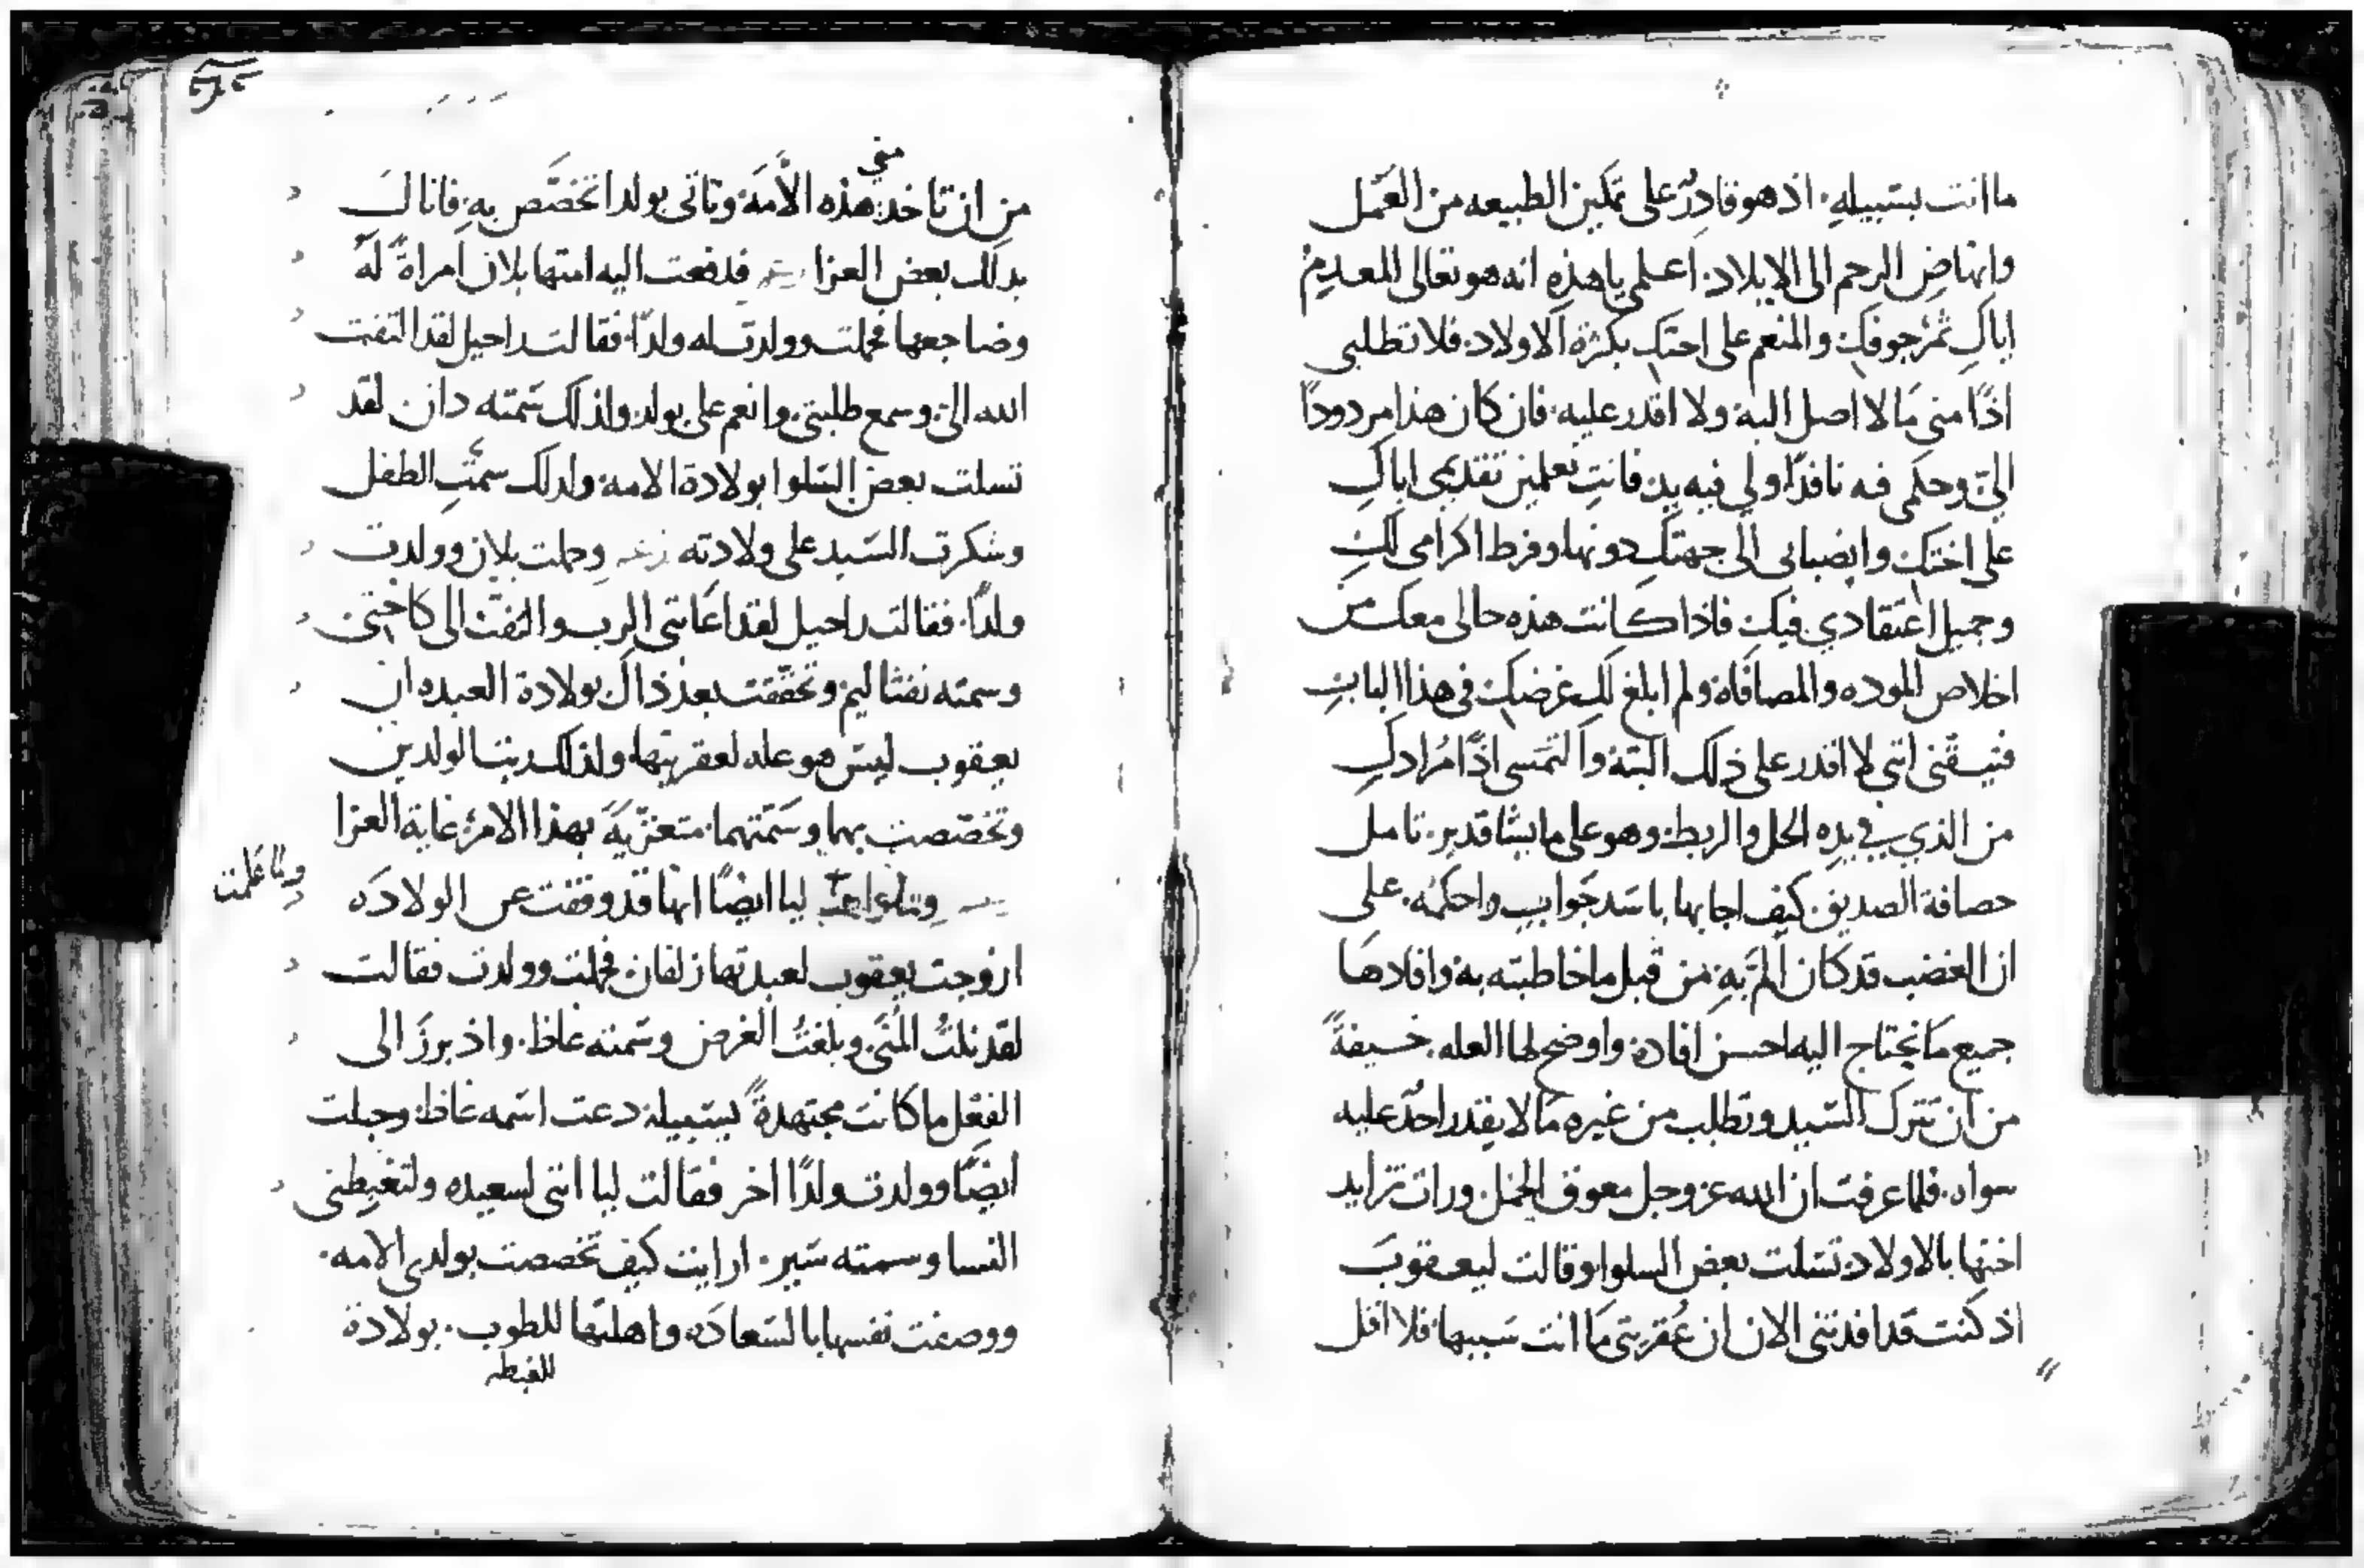 ما انت بسبيله. اذ هو قادرٌ على تمكين الطبيعه من العمل
وانهاض الرحم الى الايلاد. اعلمي ياهذه انه هو تعالى المعدم
اياكِ ثمر جوفكِ والمنعم على اختكِ بكثرة الاولاد. فلا تطلبي
اذًا مني ما لا اصل اليه ولا اقدر عليه. فان كان هذا مردودًا
اليّ وحكمي فيه نافذًا ولي فيه يد فانتِ تعلمين تقديمي اياكِ
على اختكِ وانصبابي الى جهتكِ دونها وفرط اكرامي لكِ
وجميل اعتقادي فيكِ فاذا كانت هذه حالي معكِ من
اخلاص الموده والمصافاة ولم ابلغ لكِ غرضكِ في هذا الباب
فتيقني انني لا اقدر على ذلك البتة والتمسي اذًا مُرادكِ
من الذي في يده الحل والربط وهو على ما يشا قدير. تامل
حصافة الصديق. كيف اجابها باسَد جَواب واحكمه. على
ان الغضب قد كان المّ به من قبل ما خاطبته به وافادها
جميع ما تحتاج اليه احسن افادة واوضح لها العله. خيفةً
من ان تترك السّيد وتطلب من غيره ما لا يقدر احدٌ عليه
سواه. فلما عرفت ان الله عز وجل معوق الحبل ورات تزايد
اختها بالاولاد تسّلت بعض السلوا وقالت ليعقوبَ
اذ كنت قد افدتني الان ان عُقريتي ما انت سَببها فلا اقل
من ان تاخذ مني هذه الأَمَة وتاتي بولد اتخصّص به. فانالَ
بذلك بعض العزا فدفعت اليه امتها بلان امراةً لَهُ
وضاجعها فحملت وولدت له ولدًا. فقالت راحيل لقد التفت
الله اليّ وسمع طلبتي وانعم علي بولد ولذلك سّمته دان لقد
تسلت بعض السّلوا بولادة الامة ولذلك سمّت الطفل
وشكرت السّيد على ولادته وحملت بلان وولدت
ولدًا. فقالت راحيل لقد اعَانني الرب والتفت الى كاختي
وسمته نفثاليم وتحقّقت بعد ذاك بولادة العبده ان
يعقوب ليسّ هو عله لعقريتها. ولذلك ربت الولدين
وتخصّصت بهما وسَمّتهما متعزّيَةً بهذا الامر غاية العزا
ولما علمت
ليا ايضًا انها قد وقفت عن الولادَه
ازوجت يعقوب لعبدتها زلفان فحملت وولدت فقالت
لقد نلتُ المُنَى وبلغتُ الغرض وسّمته غاظ. واذ برزَ الى
الفعِل ما كانت مجتهدةً بسّبيله دعت اسّمه غاظ وحبلت
ايضًا وولدت ولدًا اخر فقالت ليا انني لسعيده ولتغبطني
النسا وسمته سَير. ارايت كيف تخصصت بولدي الامه.
ووصفت نفسها بالسّعادَه واهلتها للطوب. بولادة
للغبطه